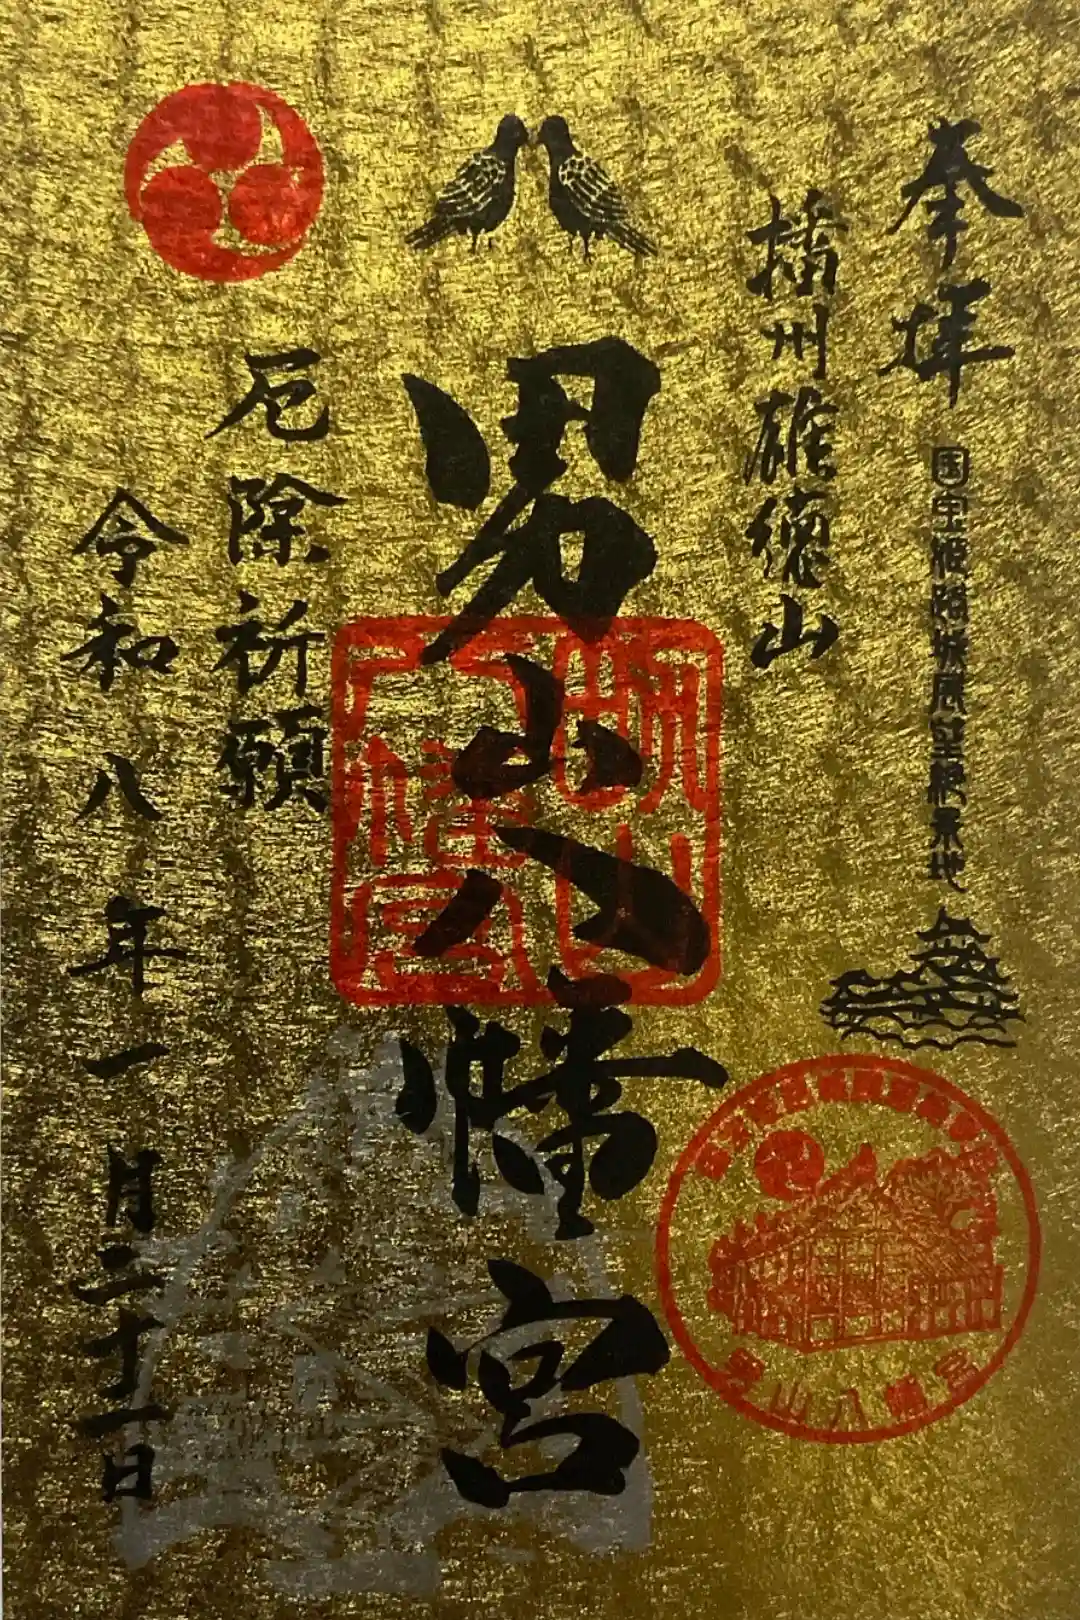 奉拝
国宝姫路城展望絶景地
播州雄徳山
男山八幡宮
厄除祈願
令和八年一月三十一日
男山八幡宮
男山八幡宮